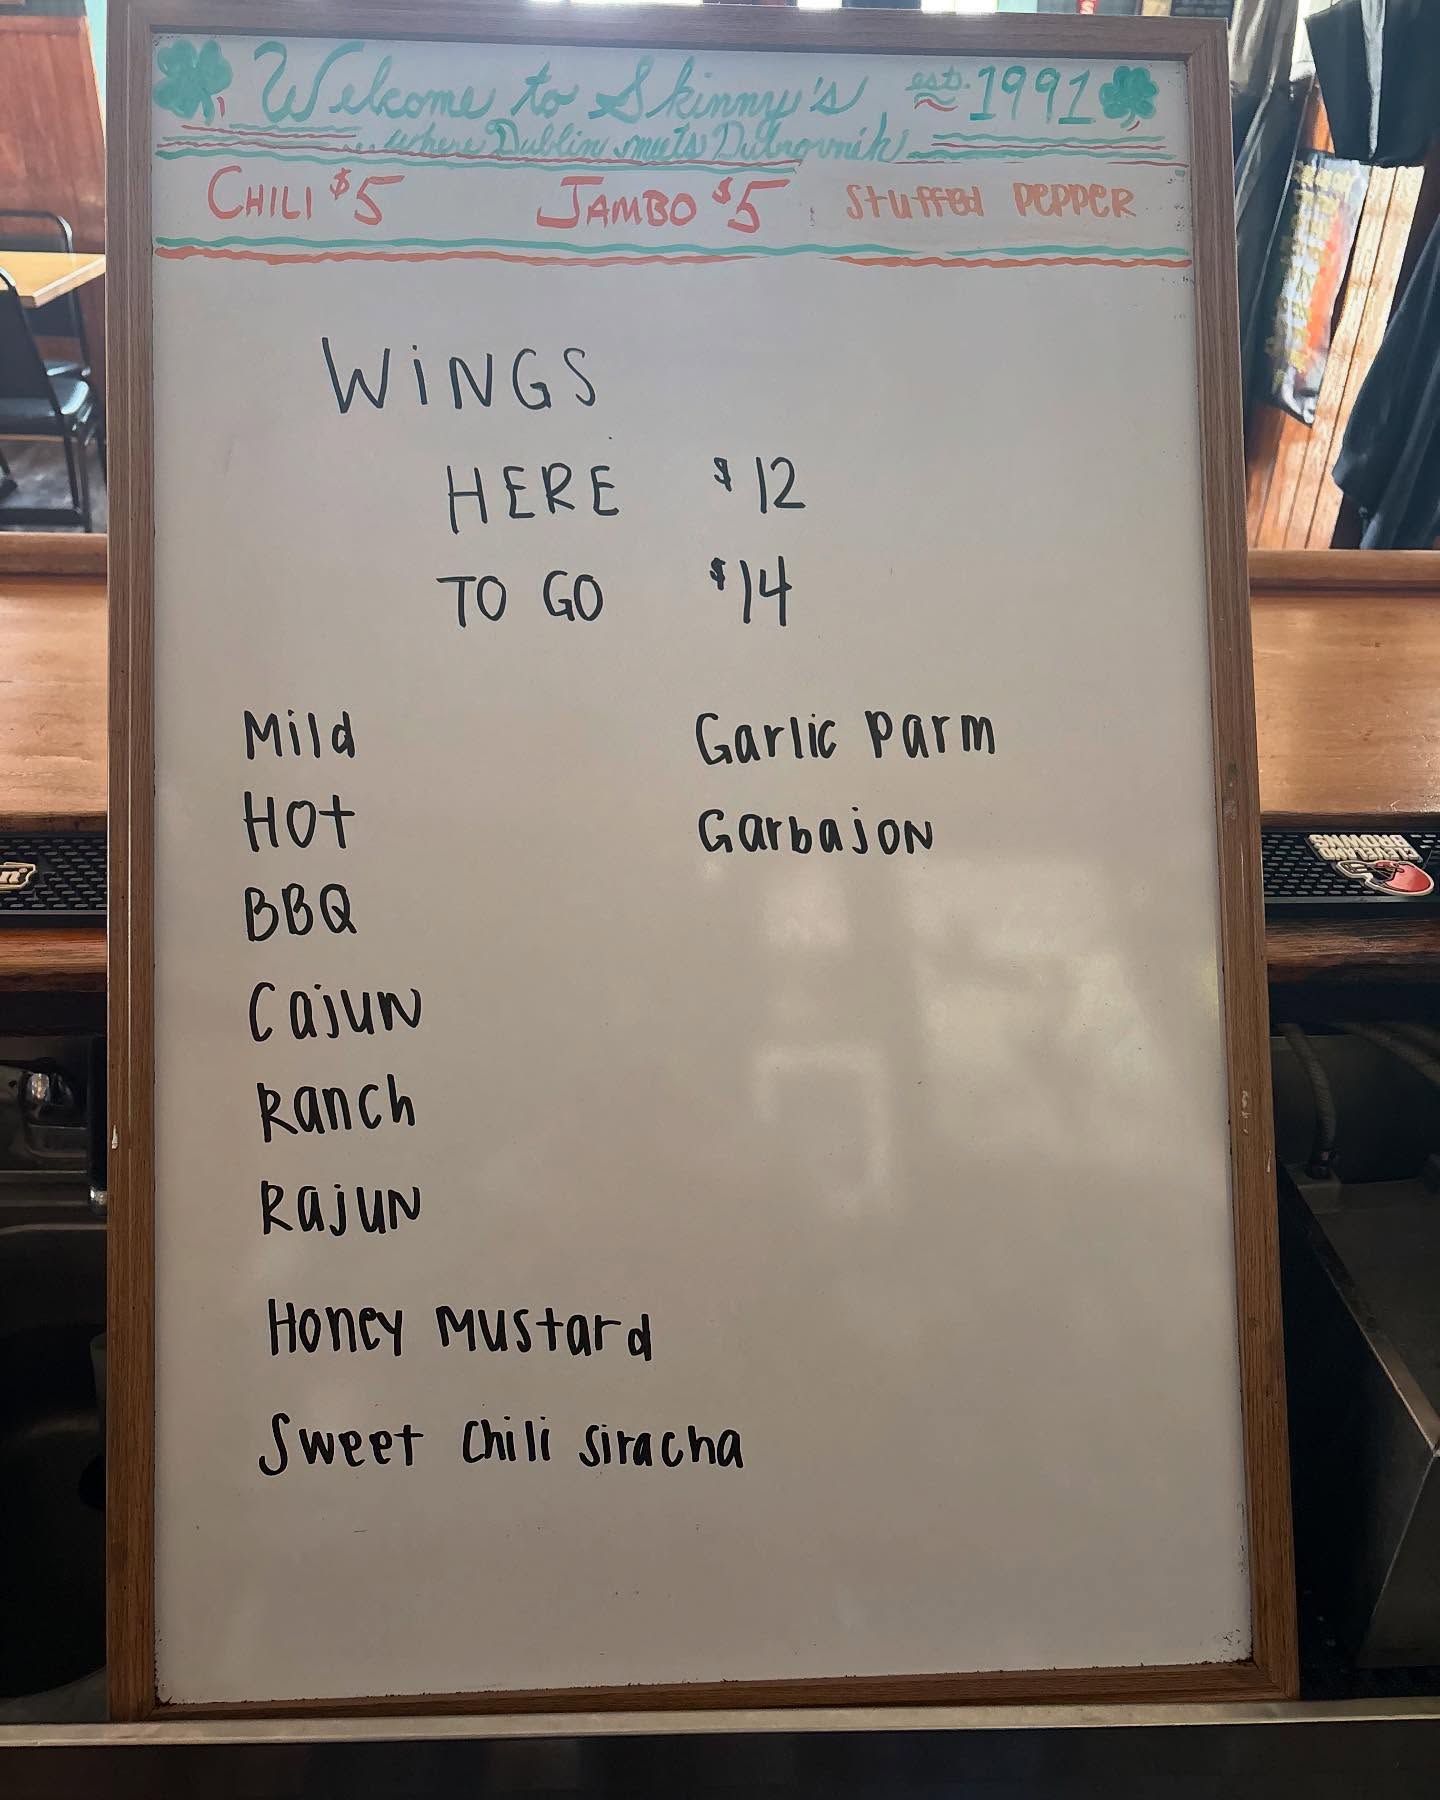 Welcome to Skinny's est. 1991
where Dublin meets Dubrovnik
CHILI $5 JAMBO $5 Stuffed PEPPER
WiNGS
HERE $12
TO GO $14
Mild Garlic Parm
HOt Garbajon
BBQ
Cajun
Ranch
Rajun
Honey Mustard
Sweet Chili Siracha
CLEVELAND BROWNS